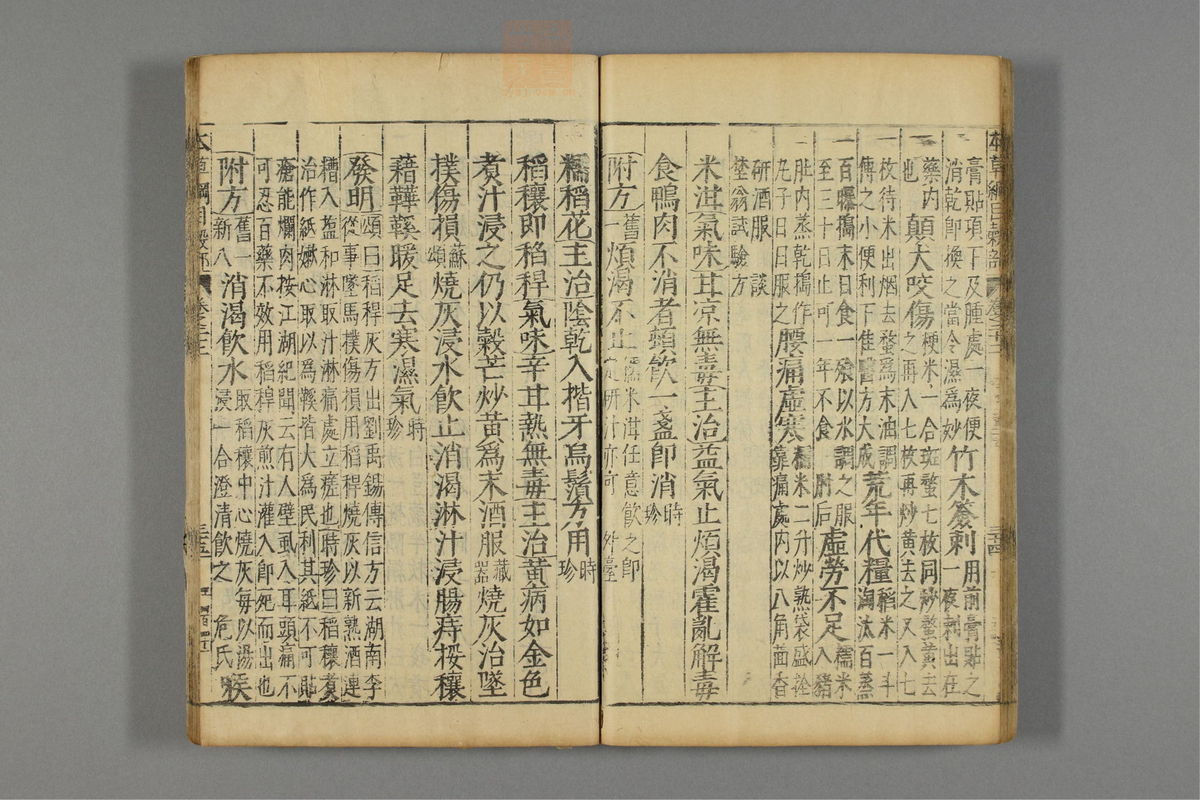 本草綱目穀部 卷之二十二
膏貼項下及腫處一夜便
消乾卽換之當令濕為妙 竹木簽刺 用前膏貼之
一夜刺出在
藥内
也 顛犬咬傷 梗米一合斑蝥七枚同炒蝥黄去
之再入七枚再炒黄去之又入七
枚待米出烟去蝥為末油調
傅之小便利下佳 醫方大成 荒年代糧 稻米一斗
淘汰百蒸
百曝搗末日食一飱以水調之服
至三十日止可一年不食 肘后 虚勞不足 糯米
入豬
肚内蒸乾搗作
丸子日日服之 腰痛虚寒 糯米二升炒熟袋盛拴
靠痛處内以八角茴香
研酒服 談
埜翁試驗方
米泔 氣味 甘凉無毒 主治 益氣止煩渴霍亂解毒
食鴨肉不消者頓飲一盞卽消 時珍
附方 舊一 煩渴不止 糯米泔任意飲之卽
定研汁亦可 外臺
糯稻花 主治 陰乾入揩牙烏鬚方用 時珍
稻穰 卽稻稈 氣味 辛甘熱無毒 主治 黄病如金色
煮汁浸之仍以穀芒炒黄為末酒服 藏器 燒灰治墜
撲傷損 蘇頌 燒灰浸水飲止消渴淋汁浸腸痔挼穰
藉鞾鞵暖足去寒濕氣 時珍
發明 頌曰稻稈灰方出劉禹錫傳信方云湖南李
從事墜馬撲傷損用稻稈燒灰以新熟酒連
糟入鹽和淋取汁淋痛處立瘥也 時珍曰稻穰煮
治作紙嫩心取以為鞵皆大為民利其紙不可貼
瘡能爛肉按江湖紀聞云有人壁虱入耳頭痛不
可忍百藥不效用稻稈灰煎汁灌入卽死而出也
附方 舊一
新八 消渴飲水 取稻穰中心燒灰每以湯
浸一合澄清飲之 危氏 喉